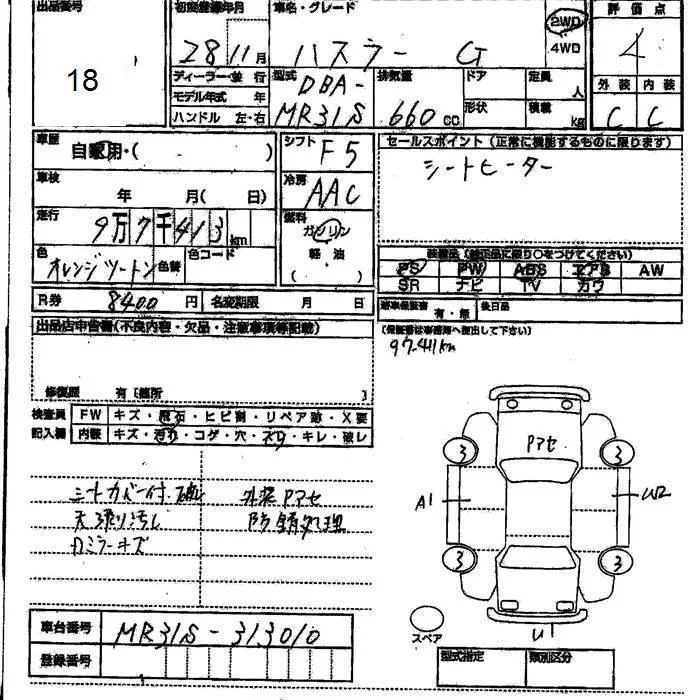 出品番号
18
初度登録年月
28年11月
車名・グレード
ハスラー G
2WD
4WD
評価点
4
外装 内装
C C
ディーラー・並行
モデル年式 年
ハンドル 左・右
型式
DBA-
MR31S
排気量
660 cc
ドア
形状
定員
人
積載
kg
車歴
自家用・( )
シフト
F5
セールスポイント(正常に機能するものに限ります)
シートヒーター
車検
年 月( 日)
冷房
AAC
走行
9万7千413km
燃料
ガソリン
軽油
( )
色
オレンジツートン
色替
色コード
装備品(純正品に限り○をつけてください)
PS PW ABS エアB AW
SR ナビ TV カワ
R券 8400円
名変期限 月 日
新車保証書
有・無
後日品
(保証書は事務所へ提出して下さい)
97.411km
出品店申告欄(不良内容・欠品・注意事項等記載)
修復歴 有〔箇所 〕
検査員
記入欄
FW キズ・飛石・ヒビ割・リペア跡・X要
内装 キズ・汚れ・コゲ・穴・スリ・キレ・破レ
シートカバー付
天張り汚し
Rミラーキズ
外装Pアセ
防錆処理
Pアセ
3 3
A1
W2
3 3
スペア
U1
車台番号
MR31S-313010
登録番号
型式指定
類別区分